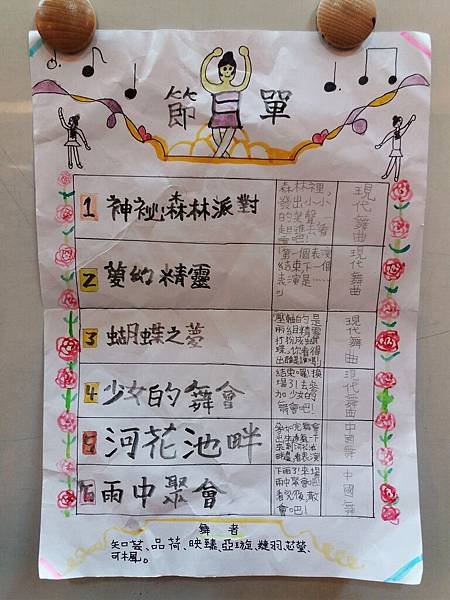 節目單
1 神祕森林派對
森林裡,
發出小小
的笑聲,
起進去看
現代舞曲
2 夢幻精靈
第一個表演
結束下一個
表演是……
現代舞曲
3 蝴蝶之夢
壓軸的是
精靈
打扮成蝴
蝶,你看得
現代舞曲
4 少女的舞會
結束囉!換
場了!去參
加少女的
舞會吧!
現代舞曲
5 河花池畔
參加完舞會
出來透氣一下
來到河花池
畔邊看表演
中國舞
6 雨中聚會
下雨了!來場
雨中聚會吧
看完後散
會吧!
中國舞
舞者
知芸、品荷、映臻、亞璇、羽、芯瑩、
可楓。